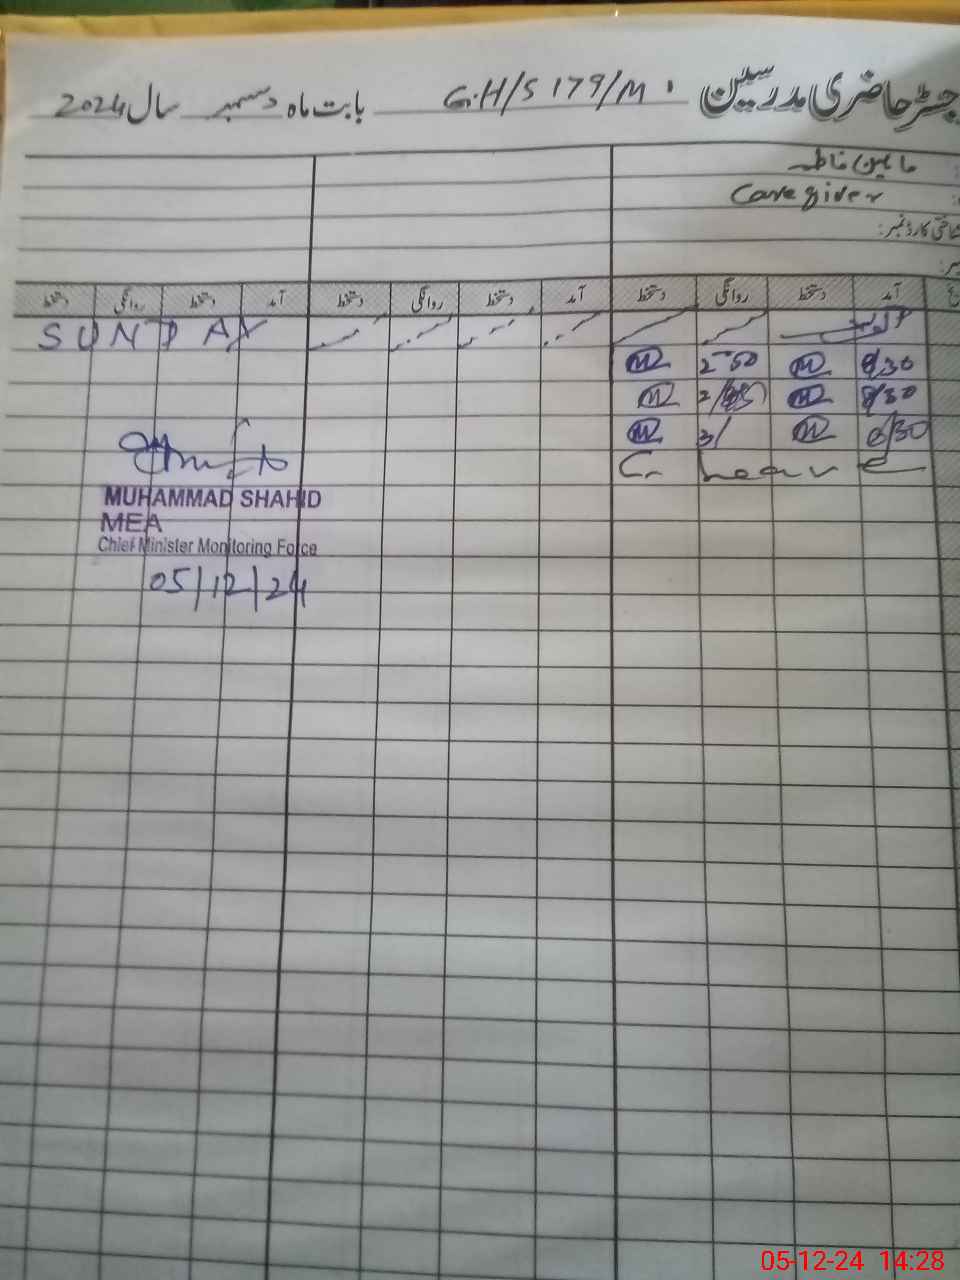 جسٹر حاضری مدرسین G.H/S 179/M. بابت ماہ دسمبر سال 2024
Caregiver
شناختی کارڈ نمبر:
آمد دستخط روانگی دستخط آمد دستخط روانگی دستخط آمد دستخط روانگی دستخط
SUNDAY
8/30 2-50
8/30
8/30 3/
C. Leave
MUHAMMAD SHAHID
MEA
Chief Minister Monitoring Force
05/12/24
05-12-24 14:28